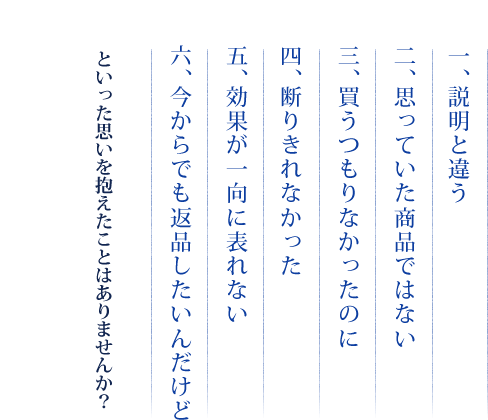 一、説明と違う
二、思っていた商品ではない
三、買うつもりなかったのに
四、断りきれなかった
五、効果が一向に表れない
六、今からでも返品したいんだけど
といった思いを抱えたことはありませんか？